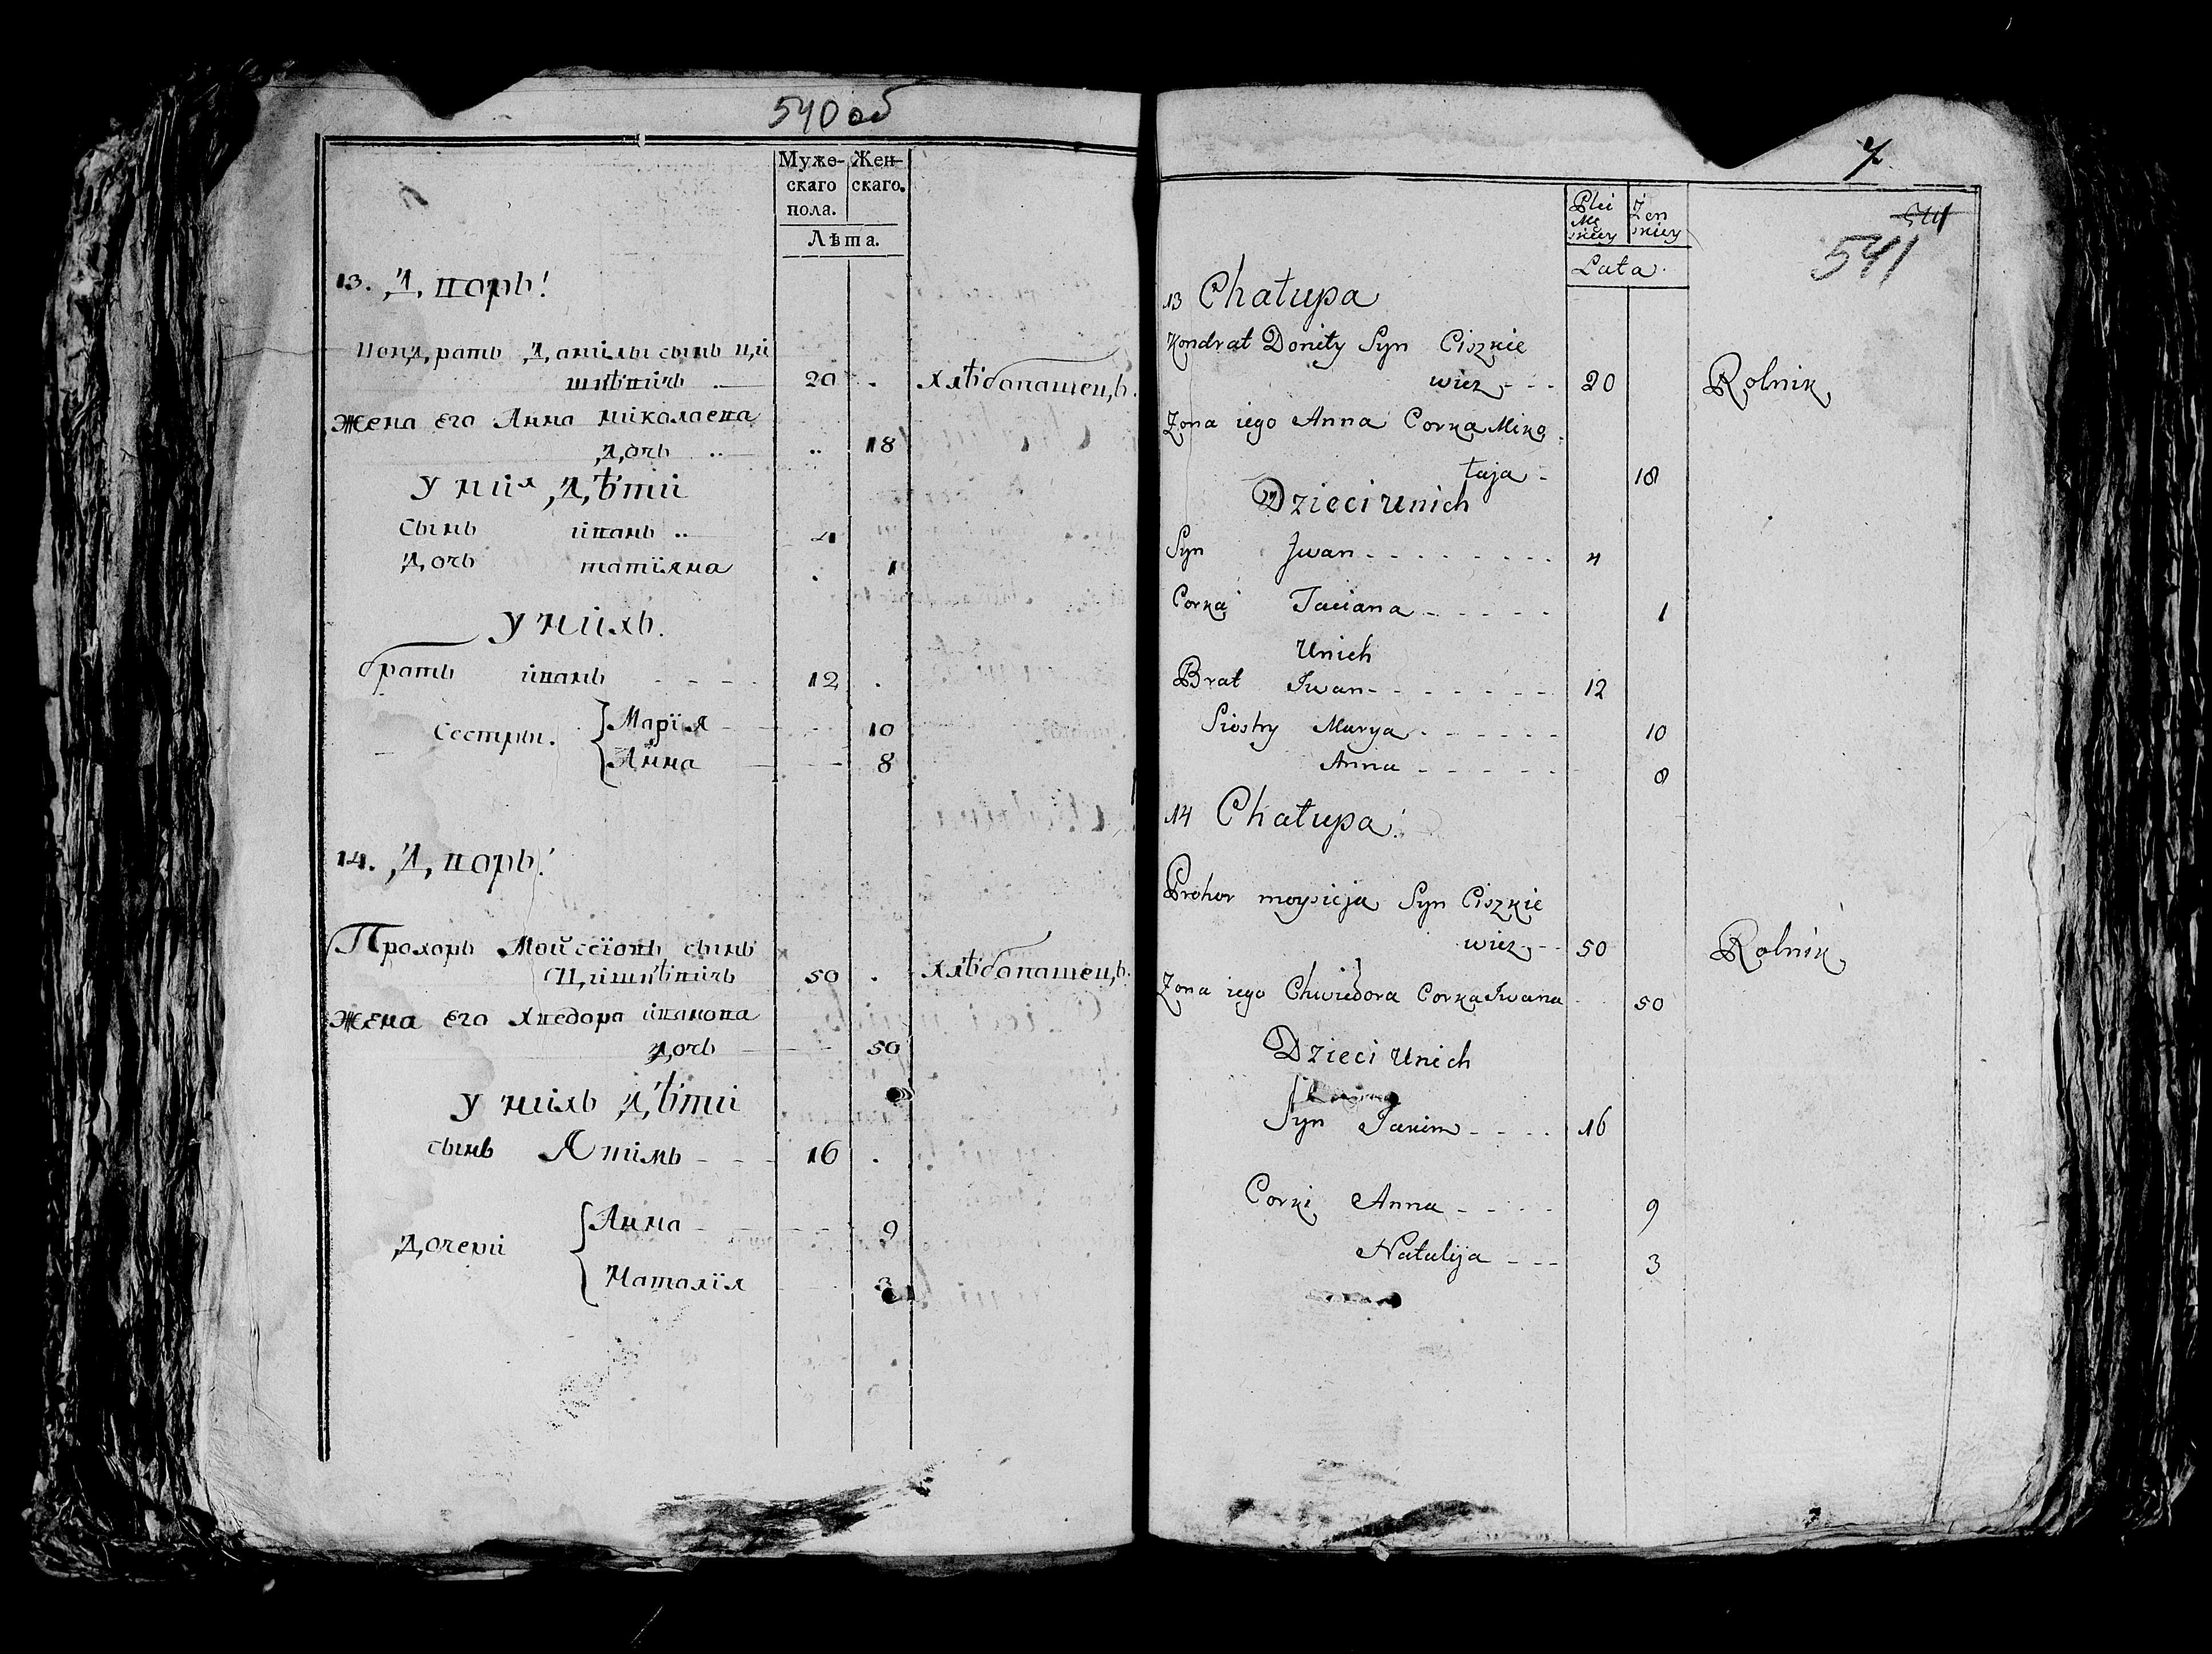 540 об
Муже- Жен-
скаго скаго.
пола.
Лѣта.
13. Дворъ!
Кондратъ Данилы сынъ Ци
шкѣвичь 20 Хлѣбопашецъ.
Жена его Анна Николаева
дочь 18
У них дѣти
Сынъ иванъ 4
Дочь татияна 1
У нихъ.
братъ иванъ 12
Сестры. Марїя 10
Анна 8
14. Дворъ!
Прохоръ Мойсеїовъ сынъ
Цишкѣвичь 50 Хлѣбопашецъ.
Жена его Хведора иванова
дочь 50
У нихъ дѣти
сынъ Якимъ 16
Дочери Анна 9
Наталїя 3
7
541
541
Płci Żen
Mę skiey
skiey
Lata
13 Chałupa
Kondrat Deniły Syn Ciszkie
wicz 20 Rolnik
Zona iego Anna Corka Miko
łaja 18
Dzieci u nich
Syn Jwan 4
Corka Taciana 1
U nich
Brat Jwan 12
Siostry Marya 10
Anna 8
14 Chałupa
Prohor moysieja Syn Ciszkie
wicz 50 Rolnik
Zona iego Chwiedora Corka Jwana 50
Dzieci u nich
Syn Jakim 16
Corki Anna 9
Natalija 3